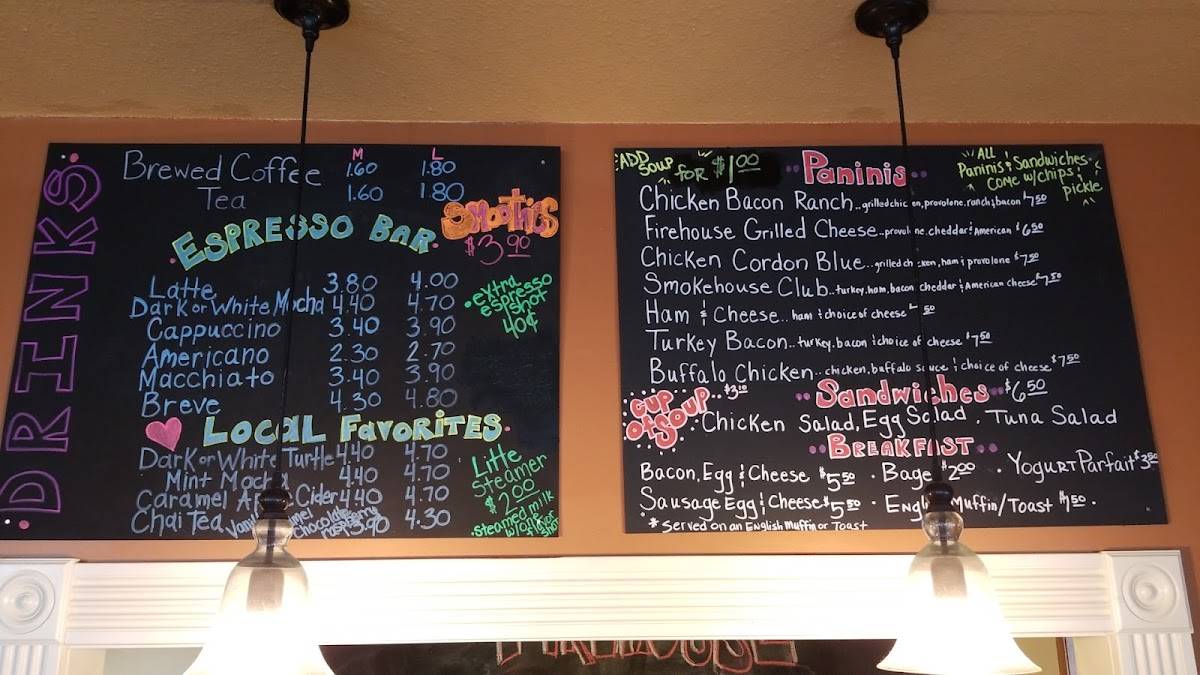 DRINKS
M L
Brewed Coffee 1.60 1.80
Tea 1.60 1.80
SMOOTHIES
$3.90
ESPRESSO BAR
Latte 3.80 4.00
Dark or White Mocha 4.40 4.70
Cappuccino 3.40 3.90
Americano 2.30 2.70
Macchiato 3.40 3.90
Breve 4.30 4.80
• extra
espresso
shot
40¢
LOCAL FAVORITES
Dark or White Turtle 4.40 4.70
Mint Mocha 4.40 4.70
Caramel Cider 4.40 4.70
Chai Tea 3.90 4.30
chocolate
raspberry
Litte
Steamer
$2.00
• Steamed milk
ADD SOUP FOR $1.00
PANINIS
ALL
PANINIS & SANDWICHES
COME W/CHIPS &
PICKLE
Chicken Bacon Ranch..grilled chicken, provolone, ranch & bacon $7.50
Firehouse Grilled Cheese..provolone, cheddar & American $6.50
Chicken Cordon Blue..grilled chicken, ham & provolone $7.50
Smokehouse Club..turkey, ham, bacon cheddar & American cheese $7.50
Ham & Cheese.. ham & choice of cheese 50
Turkey Bacon..turkey, bacon & choice of cheese $7.50
Buffalo Chicken..chicken, buffalo sauce & choice of cheese $7.50
CUP OF SOUP..$3.10
SANDWICHES $6.50
Chicken Salad, Egg Salad, Tuna Salad
BREAKFAST
Bacon, Egg & Cheese $5.50 • Bage $2.00 • Yogurt Parfait $3.50
Sausage Egg & Cheese $5.50 • English Muffin/Toast $1.50 •
* SERVED ON AN ENGLISH MUFFIN OR TOAST
FIREHOUSE